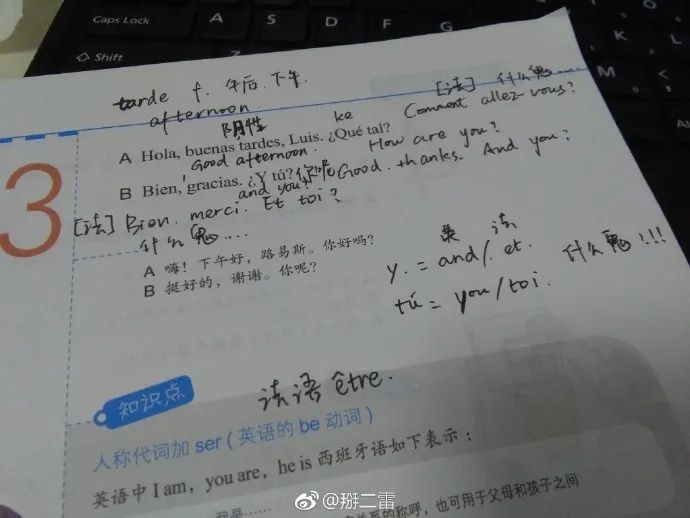 Caps Lock
A
S
Shift
M
K
L
tarde f. 午后. 下午.
afternoon
阴性
ke
[法] 什么鬼....
Comment allez-vous?
A Hola, buenas tardes, Luis. ¿Qué tal?
Good afternoon. How are you?
B Bien, gracias. ¿Y tú? 你呢 Good. thanks. And you?
and you?
[法] Bien. merci. Et toi?
什么鬼....
A 嗨！下午好，路易斯。你好吗？
B 挺好的，谢谢。你呢？
3
英 法
y. = and/. et. 什么鬼!!!
tú = you/toi.
法语 être.
知识点
人称代词加 ser ( 英语的 be 动词 )
英语中 I am, you are, he is 西班牙语如下表示：
我是……
关系的称呼，也可用于父母和孩子之间
@掰二雷